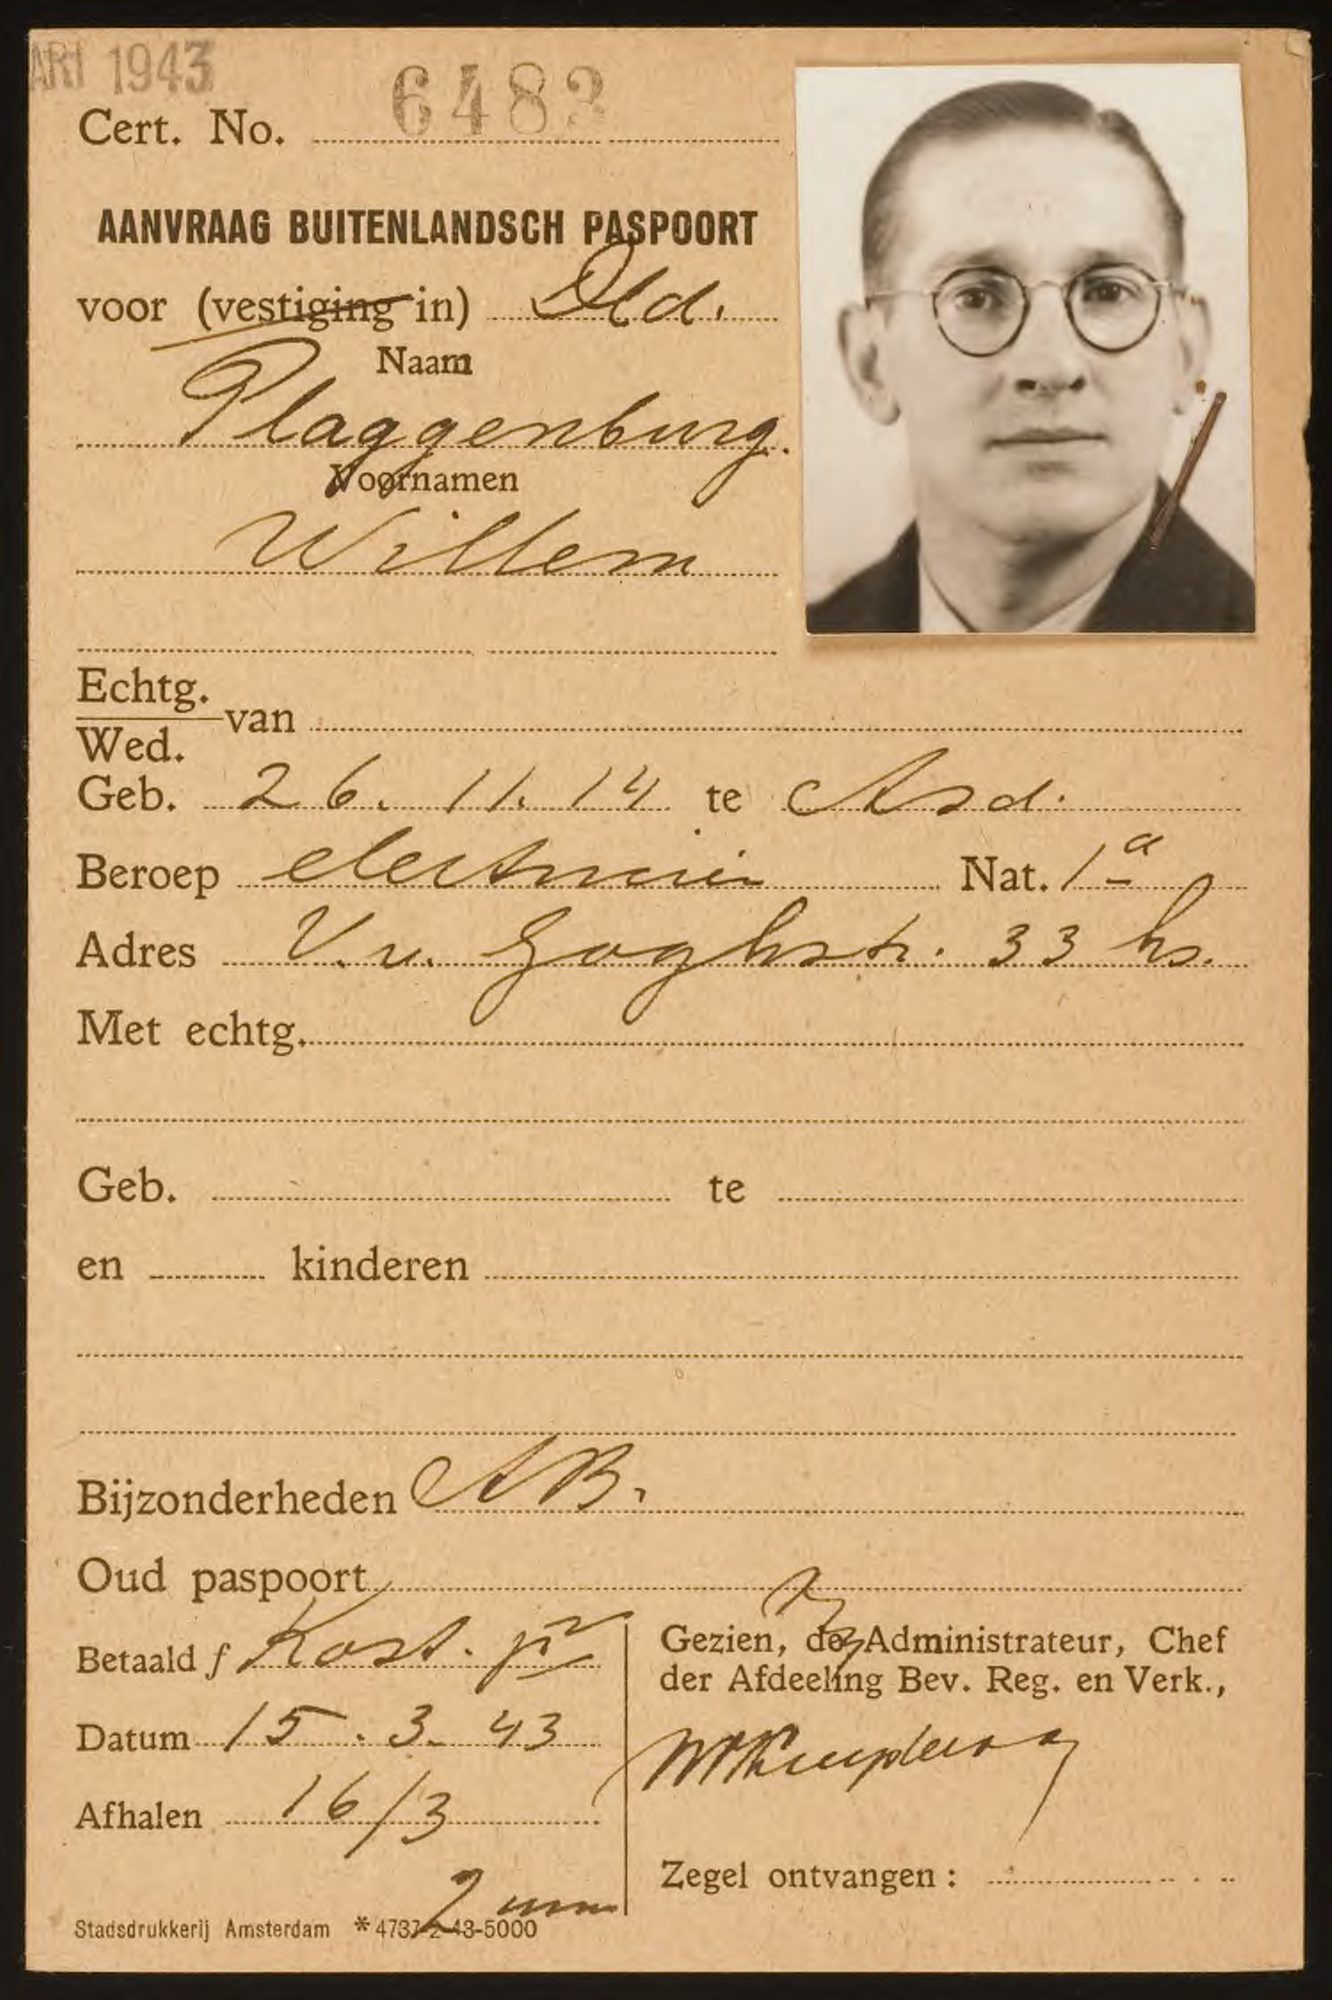 ART 1943
6483
Cert. No.
AANVRAAG BUITENLANDSCH PASPOORT
voor (vestiging in) Dld.
Naam
Plaggenburg.
Voornamen
Willem
Echtg.
van
Wed.
Geb. 26. 11. 14 te Asd.
Beroep electricien Nat. 1a
Adres V. v. Goghstr. 33 hs.
Met echtg.
Geb. te
en kinderen
Bijzonderheden AB.
Oud paspoort
Betaald f Kost.
Gezien, de Administrateur, Chef
der Afdeeling Bev. Reg. en Verk.,
Datum 15. 3. 43
Afhalen 16/3
Zegel ontvangen :
2
Stadsdrukkerij Amsterdam * 4737-2-43-5000